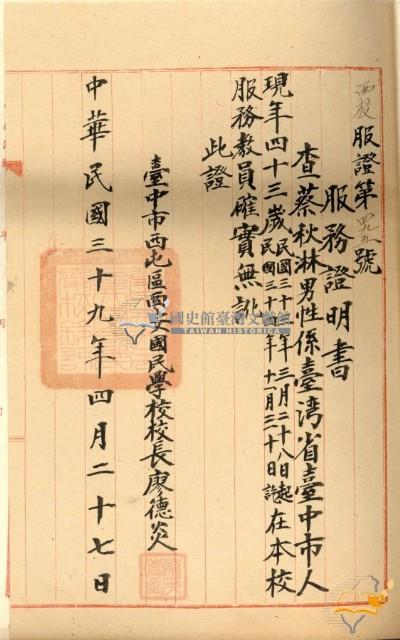 西安服證第 號
服務證明書
查蔡秋淋男性係臺灣省臺中市人
現年四十三歲民國三十四年三月二十八日起民國三十四年十一月三十日訖在本校
服務教員確實無訛
此證
臺中市西屯區西安國民學校校長廖德炎
中華民國三十九年四月二十七日
國史館臺灣文獻館
TAIWAN HISTORICA